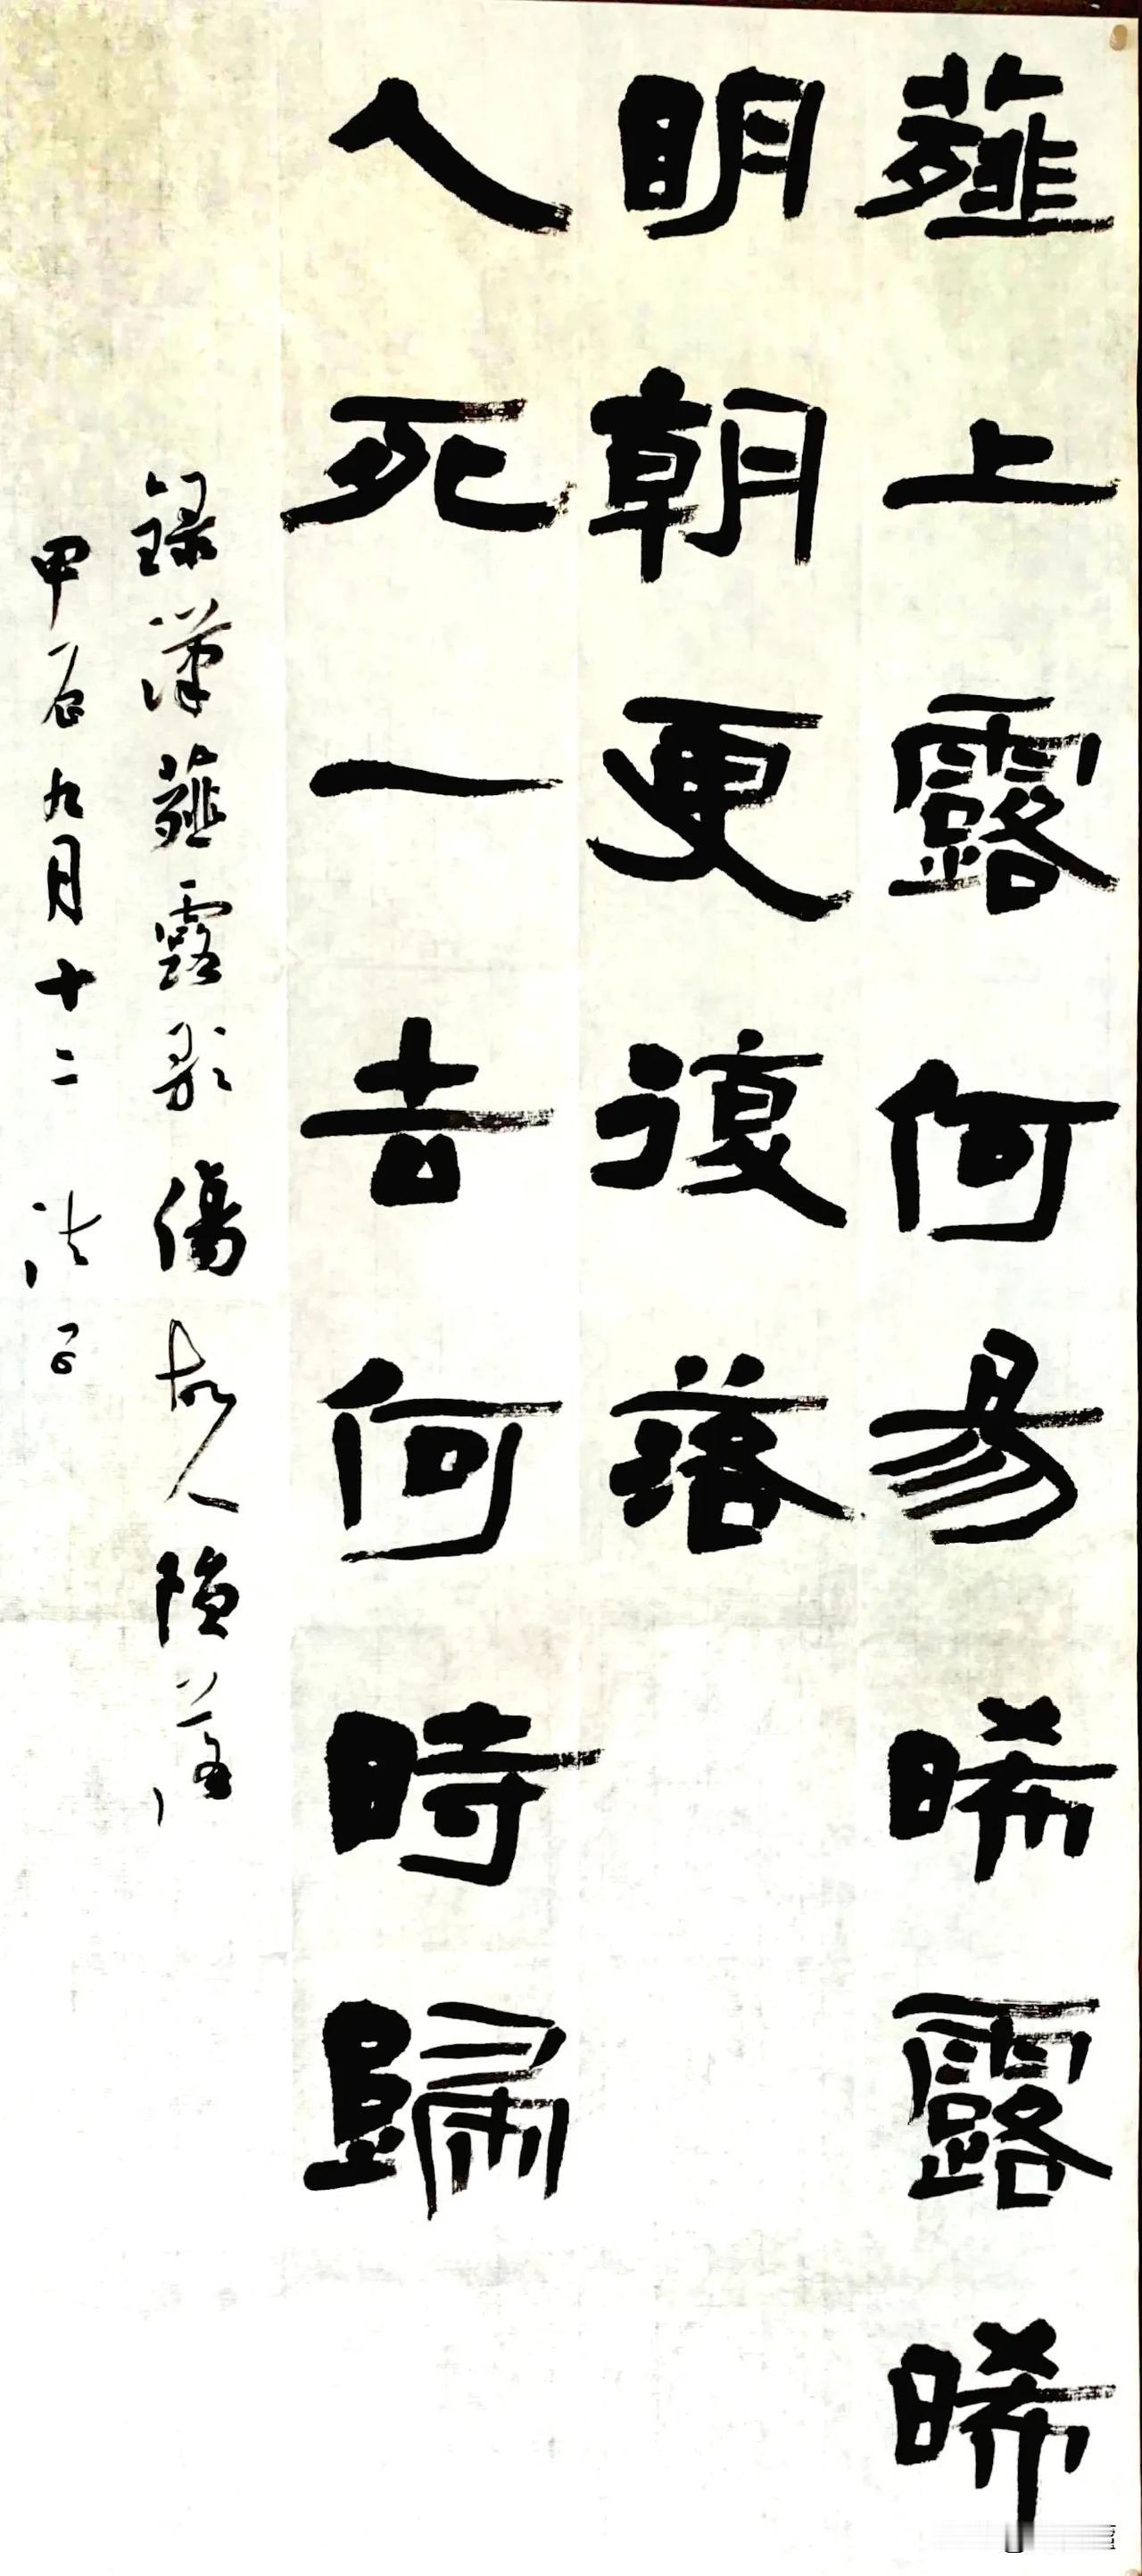 薤上露何易晞露晞
明朝更復落
人死一去何時歸
録漢薤露歌 傷故人隕落
甲辰九月十二